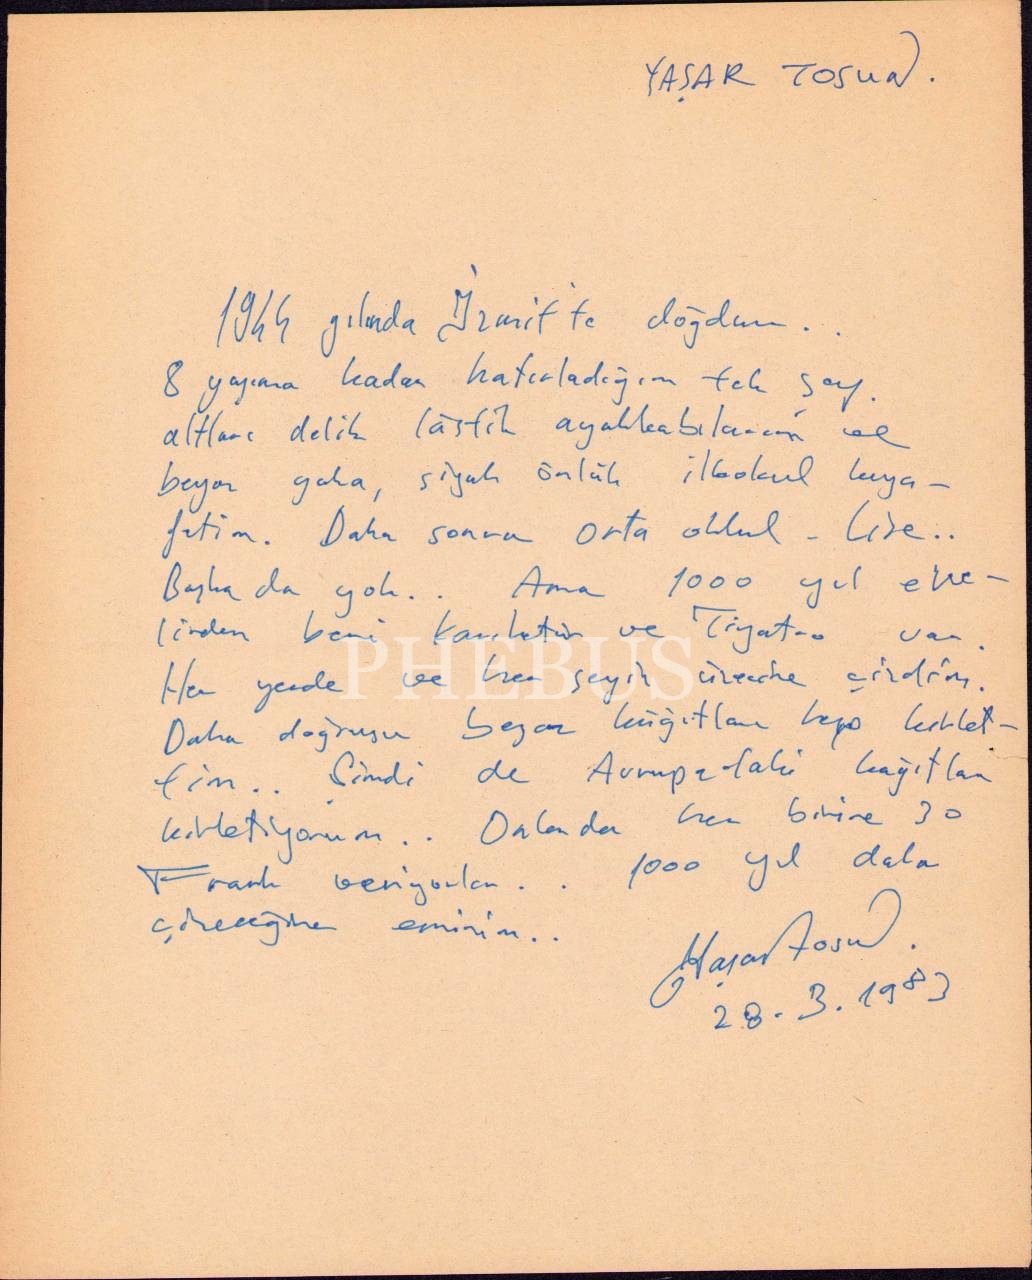 YAŞAR TOSUN.
1944 yılında İzmit'te doğdum..
8 yaşıma kadar hatırladığım tek şey.
altları delik lâstik ayakkabılarım ve
beyaz yaka, siyah önlük ilkokul kıya-
fetim. Daha sonra orta okkul - Lise..
Başka da yok.. Ama 1000 yıl evve-
linden beri karikatür ve Tiyatro var.
Her yerde ve her şeyin üzerine çizdim.
Daha doğrusu beyaz kâğıtları hep kirlet-
tim.. Şimdi de Avrupa'daki kağıtları
kirletiyorum.. Onlarda her birine 30
Frank veriyorlar.. 1000 yıl daha
çizeceğime eminim..
Yaşar Tosun.
28.3.1983
PHEBUS